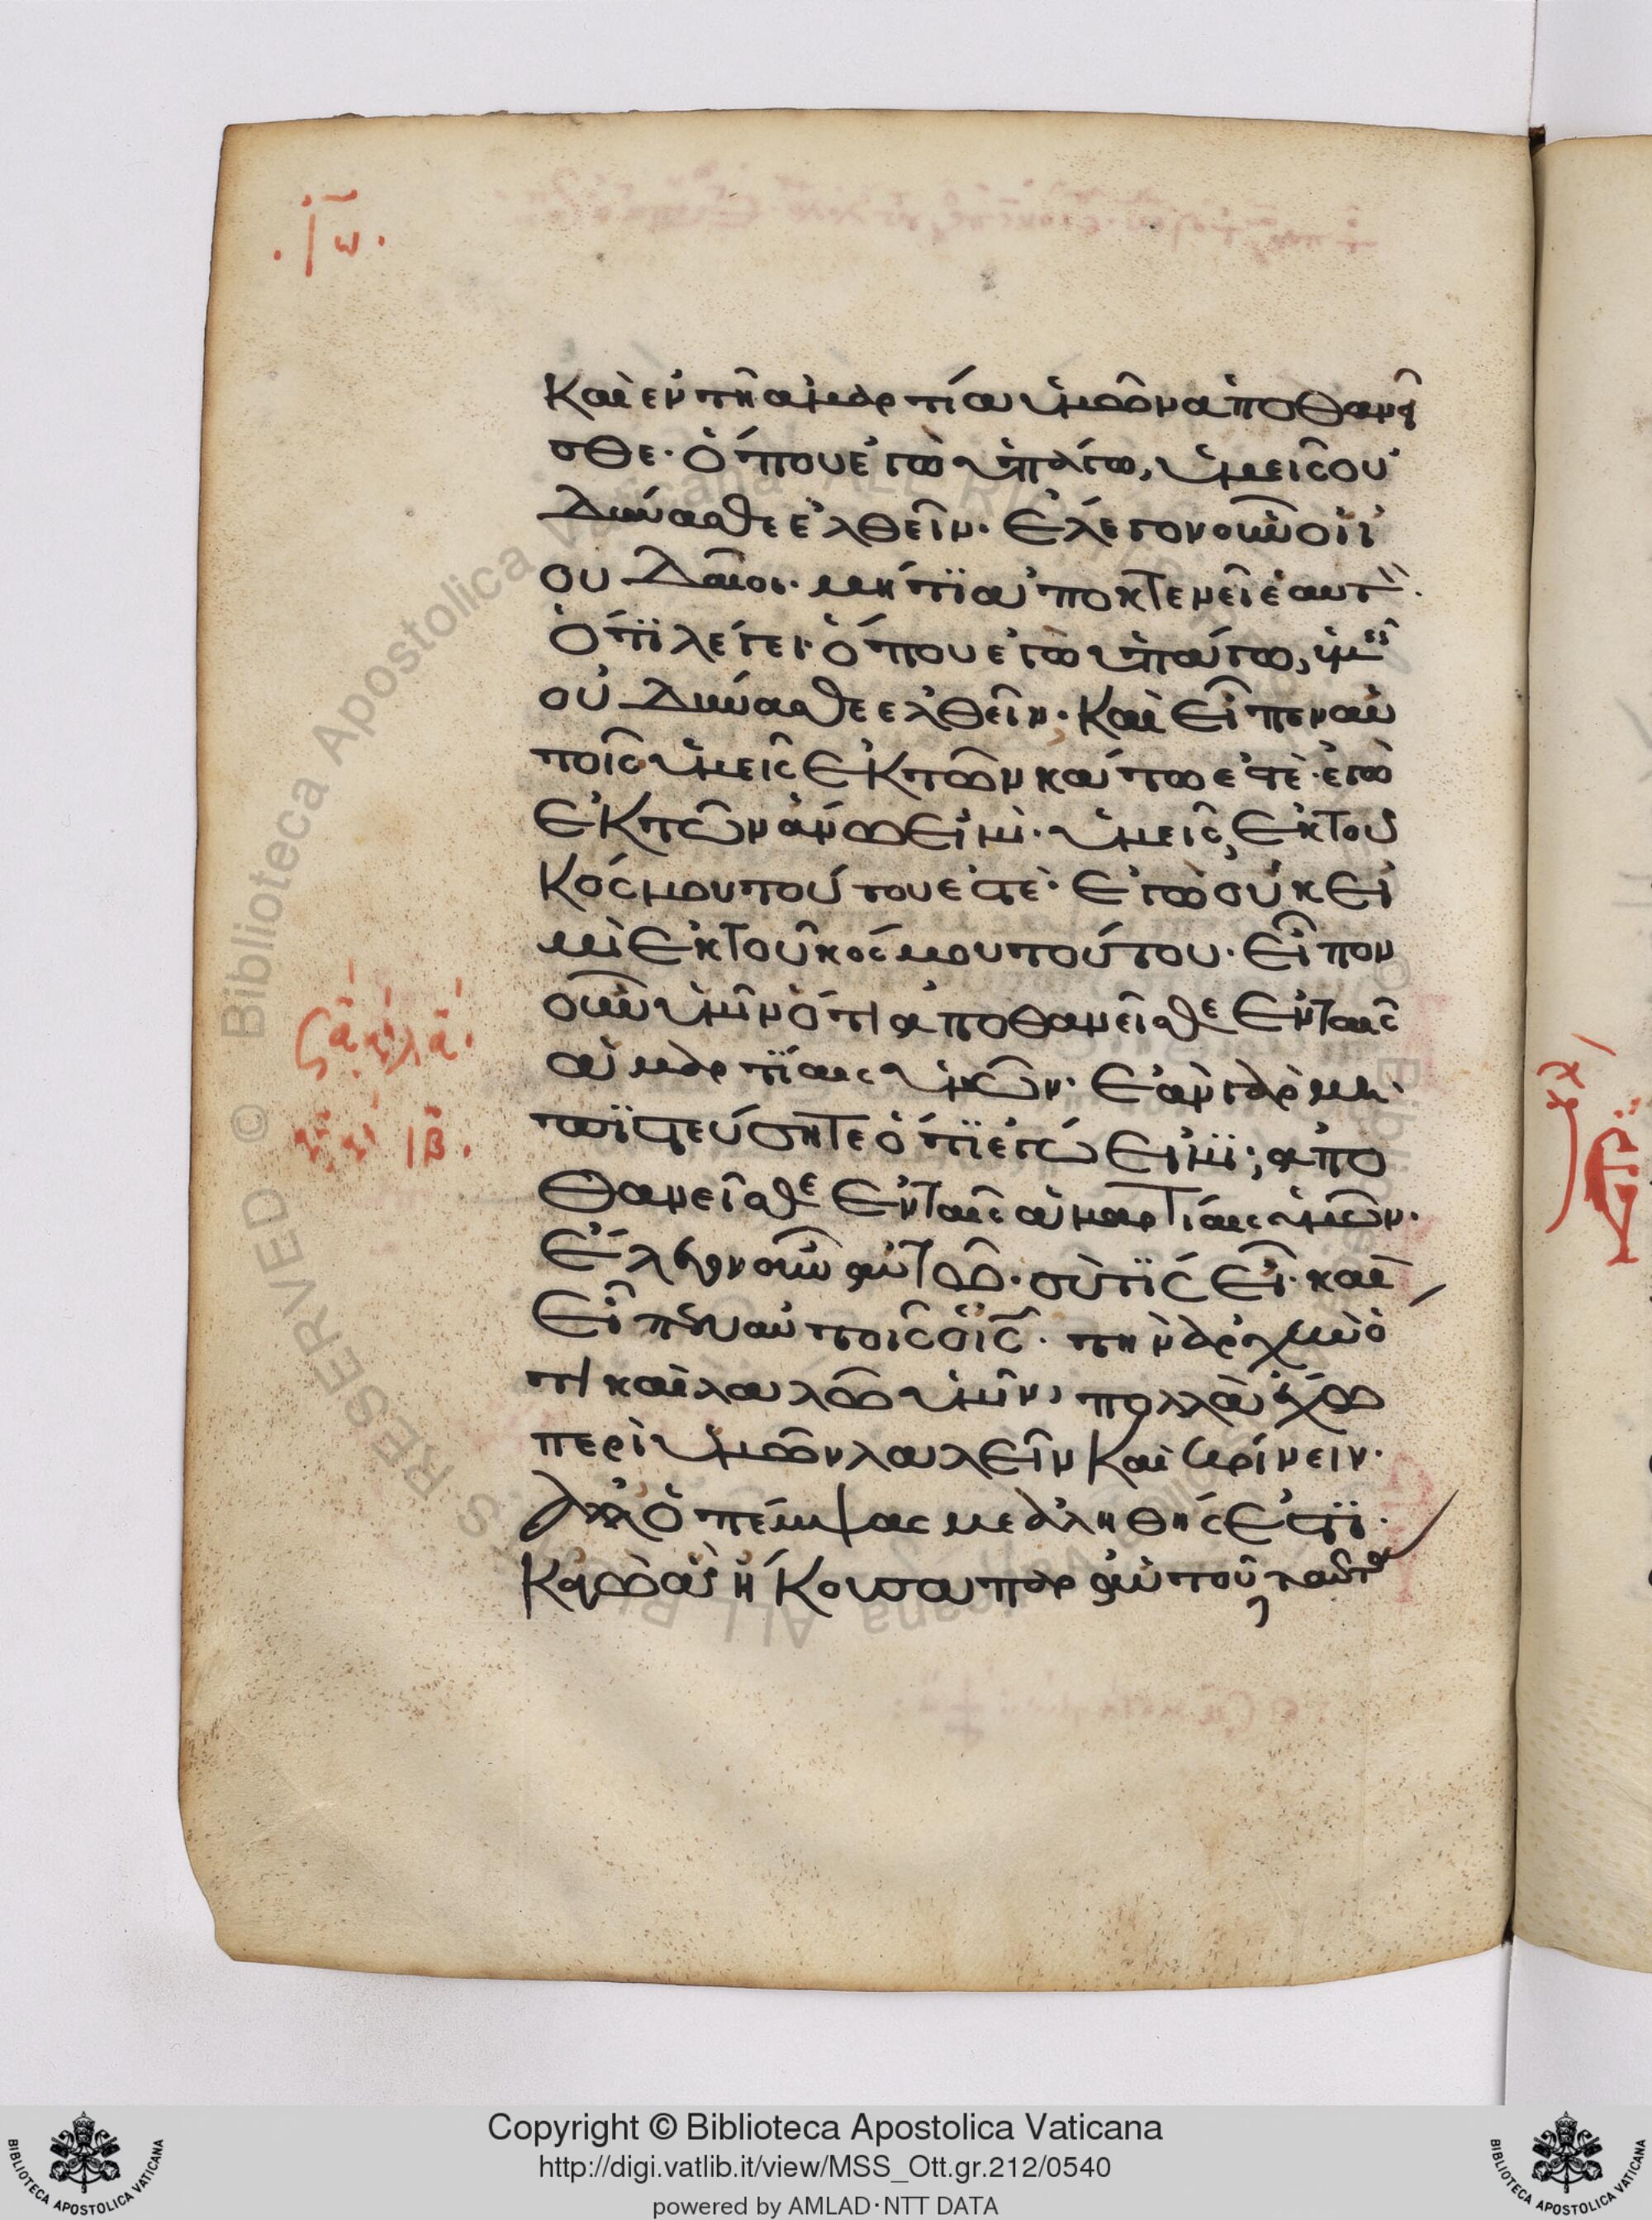 ·Ιω·
Καὶ ἐν τῆ ἁμαρτία ὑμῶν ἀποθανεῖ
σθε· ὅπου ἐγὼ ὑπάγω, ὑμεῖς οὐ
δύνασθε ἐλθεῖν· Ἔλεγον οὖν οἱ ἰ
ουδαῖοι· μήτι ἀποκτενεῖ ἑαυτὸν·
ὅτι λέγει· ὅπου ἐγὼ ὑπάγω, ὑμεῖς
οὐ δύνασθε ἐλθεῖν· Καὶ εἶπεν αὐ
τοῖς ὑμεῖς ἐκ τῶν κάτω ἐστὲ· ἐγὼ
ἐκ τῶν ἄνω εἰμὶ· ὑμεῖς, ἐκ τοῦ
κόσμου τούτου ἐστὲ· ἐγὼ οὐκ εἰ
μὶ ἐκ τοῦ κόσμου τούτου· εἶπον
οὖν ὑμῖν ὅτι ἀποθανεῖσθε ἐν ταῖς
ἁμαρτίαις ὑμῶν· ἐὰν γὰρ μὴ
πιστεύσητε ὅτι ἐγώ εἰμι; ἀπο
θανεῖσθε ἐν ταῖς ἁμαρτίαις ὑμῶν·
Ἔλεγον οὖν αὐτῶ· σὺ τίς εἶ· καὶ
εἶπεν αὐτοῖς ὁ ις· τὴν ἀρχὴν ὅ
τι καὶ λαλῶ ὑμῖν, πολλὰ ἔχω
περὶ ὑμῶν λαλεῖν καὶ κρίνειν·
ἀλλ' ὁ πέμψας με ἀληθής ἐστι·
Κἀγὼ ἃ ἤκουσα παρ αὐτοῦ, ταῦτα
ιβ·
Copyright © Biblioteca Apostolica Vaticana
http://digi.vatlib.it/view/MSS_Ott.gr.212/0540
powered by AMLAD·NTT DATA
BIBLIOTECA APOSTOLICA VATICANA
BIBLIOTECA APOSTOLICA VATICANA